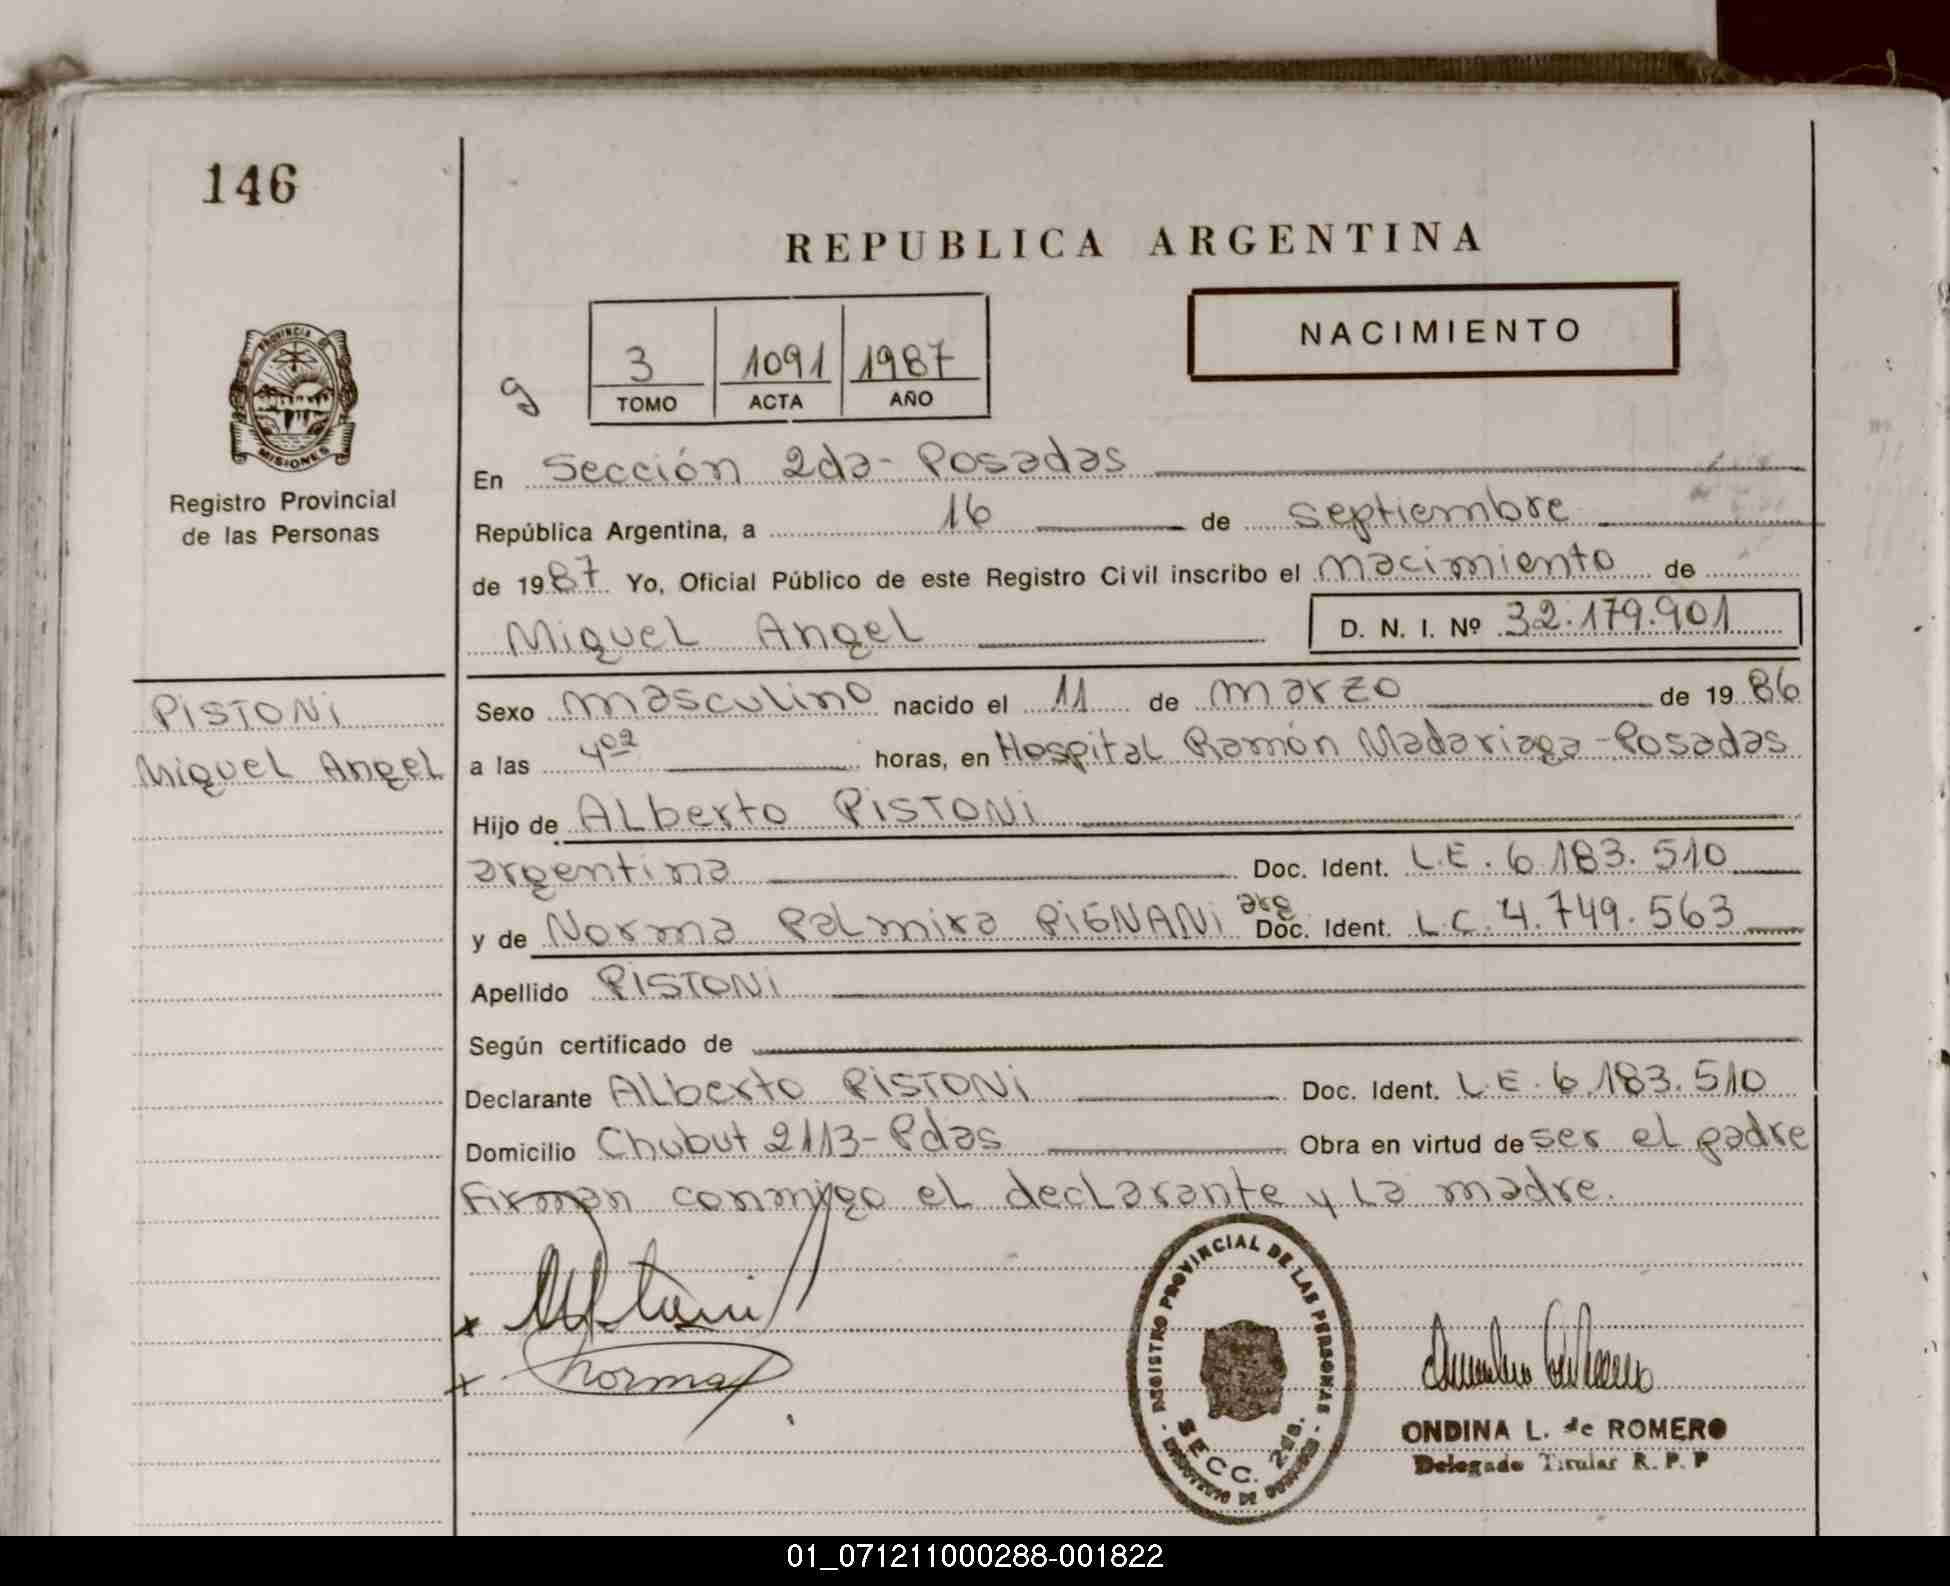 146
REPUBLICA ARGENTINA
NACIMIENTO
3 1091 1987
TOMO ACTA AÑO
g
PROVINCIA DE
MISIONES
Registro Provincial
de las Personas
En Sección 2da - Posadas
República Argentina, a 16 de septiembre
de 1987 Yo, Oficial Público de este Registro Civil inscribo el nacimiento de
Miguel Angel D. N. I. Nº 32.179.901
PISTONi
Miguel Angel
Sexo masculino nacido el 11 de marzo de 1986
a las 4 02 horas, en Hospital Ramón Madariaga - Posadas
Hijo de Alberto PISTONi
argentina Doc. Ident. L.E. 6.183.510
y de Norma Palmira PiGNANi arg Doc. Ident. L.C. 4.749.563
Apellido PISTONi
Según certificado de
Declarante Alberto PISTONi Doc. Ident. L.E. 6.183.510
Domicilio Chubut 2113 - Pdas Obra en virtud de ser el padre
Firman conmigo el declarante y la madre.
x
x Norma
REGISTRO PROVINCIAL DE LAS PERSONAS
SECC. 2da.
ONDINA L. de ROMERO
Delegado Titular R. P. P
01_071211000288-001822